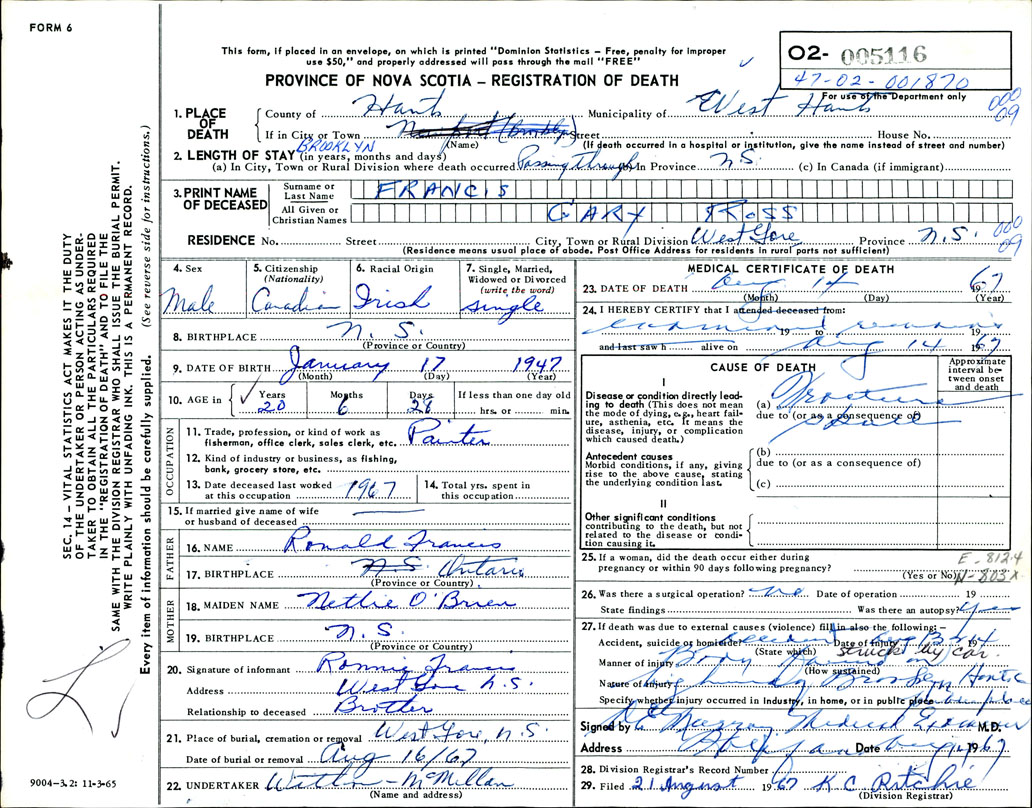 FORM 6
This form, if placed in an envelope, on which is printed "Dominion Statistics – Free, penalty for improper
use $50," and properly addressed will pass through the mail "FREE"
PROVINCE OF NOVA SCOTIA – REGISTRATION OF DEATH
O2- 005116
47-02-001870
For use of the Department only
000
09
1. PLACE OF DEATH
County of Hants Municipality of West Hants
If in City or Town Street House No.
BROOKLYN (Name) (If death occurred in a hospital or institution, give the name instead of street and number)
2. LENGTH OF STAY (in years, months and days)
(a) In City, Town or Rural Division where death occurred Passing through (b) In Province N.S. (c) In Canada (if immigrant)
3. PRINT NAME OF DECEASED
Surname or Last Name FRANCIS
All Given or Christian Names GARY ROSS
000
09
RESIDENCE No. Street City, Town or Rural Division West Gore Province N.S.
(Residence means usual place of abode. Post Office Address for residents in rural parts not sufficient)
4. Sex Male
5. Citizenship (Nationality) Canadian
6. Racial Origin Irish
7. Single, Married, Widowed or Divorced (write the word) Single
8. BIRTHPLACE N.S.
(Province or Country)
9. DATE OF BIRTH January 17 1947
(Month) (Day) (Year)
10. AGE in Years 20 Months 6 Days 28 If less than one day old hrs. or min.
OCCUPATION
11. Trade, profession or kind of work as fisherman, office clerk, sales clerk, etc. Painter
12. Kind of industry or business, as fishing, bank, grocery store, etc.
13. Date deceased last worked at this occupation 1967
14. Total yrs. spent in this occupation
15. If married give name of wife or husband of deceased
FATHER
16. NAME Ronald Francis
17. BIRTHPLACE N.S. Ontario
(Province or Country)
MOTHER
18. MAIDEN NAME Nettie O'Brien
19. BIRTHPLACE N.S.
(Province or Country)
20. Signature of informant Ronnie Francis
Address West Gore N.S.
Relationship to deceased Brother
21. Place of burial, cremation or removal West Gore, N.S.
Date of burial or removal Aug 16/67
22. UNDERTAKER McMillan
(Name and address)
MEDICAL CERTIFICATE OF DEATH
23. DATE OF DEATH Aug 14 1967
(Month) (Day) (Year)
24. I HEREBY CERTIFY that I attended deceased from:
examined remains 19 to 19
and last saw h alive on Aug 14 1967
CAUSE OF DEATH
Approximate interval between onset and death
I
Disease or condition directly leading to death (This does not mean the mode of dying, e.g., heart failure, asthenia, etc. It means the disease, injury, or complication which caused death.)
(a) Fracture
due to (or as a consequence of)
Skull
Antecedent causes
Morbid conditions, if any, giving rise to the above cause, stating the underlying condition last.
(b)
due to (or as a consequence of)
(c)
II
Other significant conditions contributing to the death, but not related to the disease or condition causing it.
25. If a woman, did the death occur either during pregnancy or within 90 days following pregnancy?
(Yes or No)
E-812.4
N-803X
26. Was there a surgical operation? No Date of operation 19
State findings Was there an autopsy? Yes
27. If death was due to external causes (violence) fill in also the following:–
Accident, suicide or homicide? Accident Date of injury Aug 19
(State which) struck by car
Manner of injury Body
(How sustained)
Nature of injury
Specify whether injury occurred in Industry, in home, or in public place
Signed by Medical Examiner M.D.
Address Date Aug 1967
28. Division Registrar's Record Number
29. Filed 21 August 1967 K C Ritchie
(Division Registrar)
SEC. 14 – VITAL STATISTICS ACT MAKES IT THE DUTY
OF THE UNDERTAKER OR PERSON ACTING AS UNDER-
TAKER TO OBTAIN ALL THE PARTICULARS REQUIRED
IN THE "REGISTRATION OF DEATH" AND TO FILE THE
SAME WITH THE DIVISION REGISTRAR WHO SHALL ISSUE THE BURIAL PERMIT.
WRITE PLAINLY WITH UNFADING INK. THIS IS A PERMANENT RECORD.
Every item of information should be carefully supplied. (See reverse side for instructions.)
9004–3.2: 11-3-65